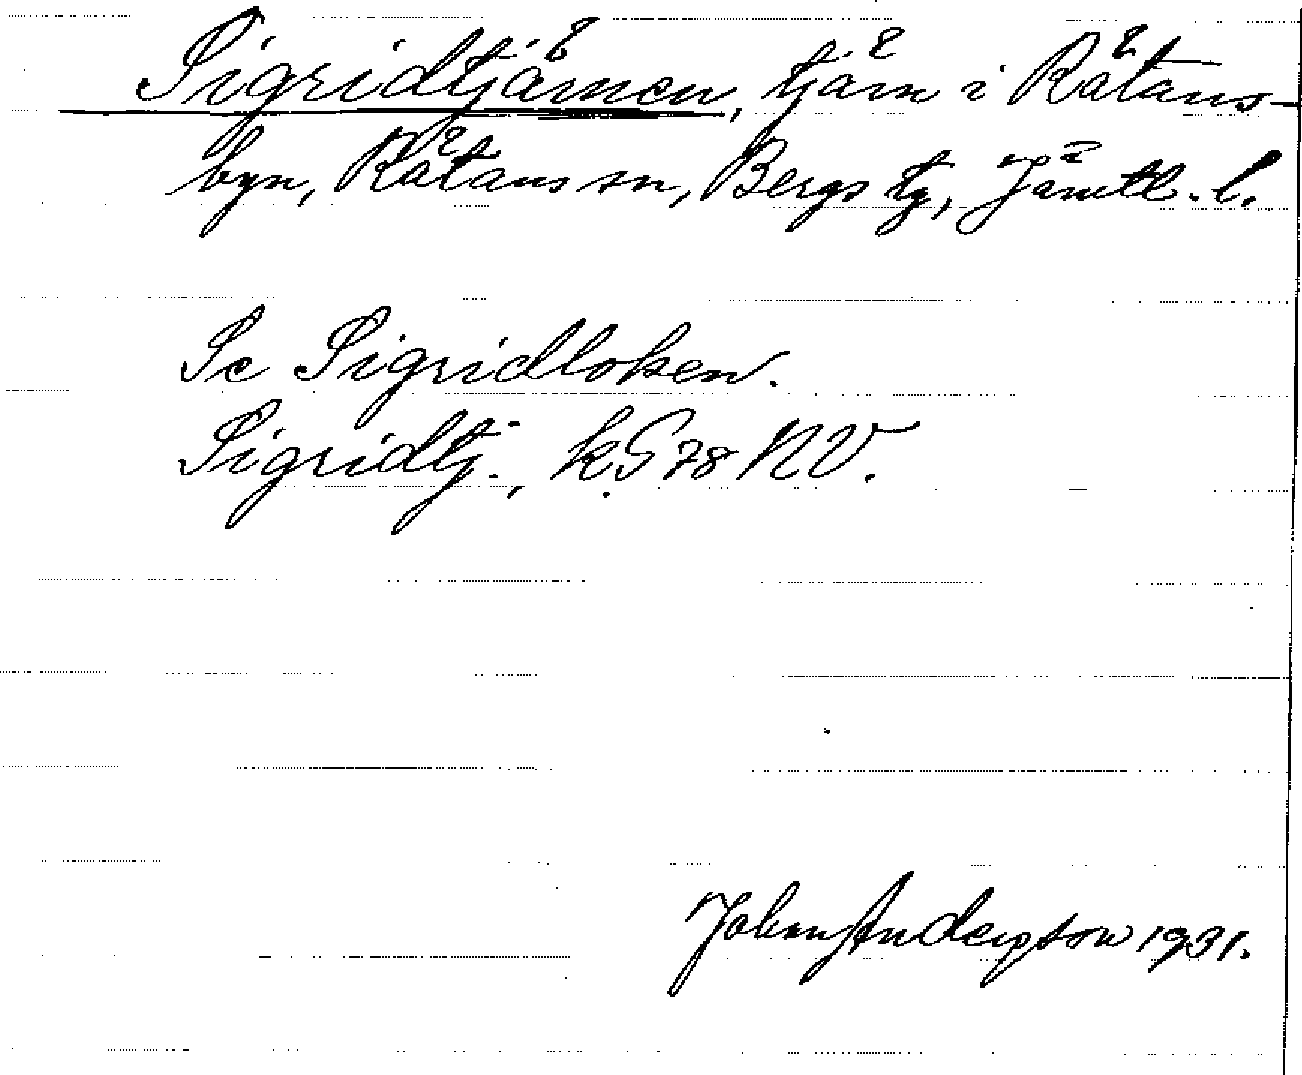 Sigridtjärnen, tjärn i Rätans-
byn, Rätans sn, Bergs tg, Jämtl. l.
Se Sigridloken.
Sigridtj., k. G 78 NV.
Johan Anderzson 1931.